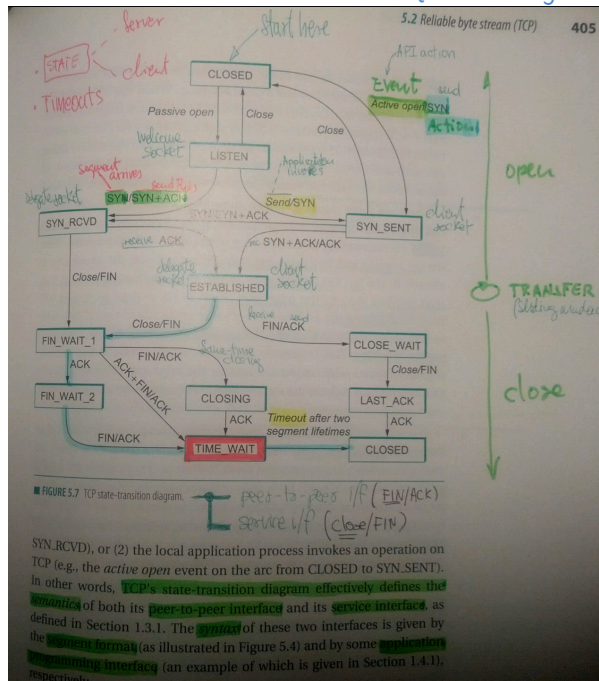 5.2 Reliable byte stream (TCP) 405
Server
STATE
client
• Timeouts
Start here
API action
Event and
Active open/SYN
Action
CLOSED
Passive open
Close
Close
welcome
socket
LISTEN
segment
arrives
send back
SYN/SYN+ACK
Application
invokes
Send/SYN
SYN/SYN+ACK
SYN_RCVD
SYN_SENT
client
socket
receive ACK
SYN+ACK/ACK
delegate
socket
client
socket
ESTABLISHED
Close/FIN
Close/FIN
receive send
FIN/ACK
FIN_WAIT_1
FIN/ACK
same-time
closing
CLOSE_WAIT
ACK
ACK+FIN/ACK
Close/FIN
FIN_WAIT_2
CLOSING
LAST_ACK
ACK
Timeout after two
segment lifetimes
ACK
FIN/ACK
TIME_WAIT
CLOSED
open
TRANSFER
close
■ FIGURE 5.7 TCP state-transition diagram.
peer-to-peer i/f (FIN/ACK)
service i/f (close/FIN)
SYN_RCVD), or (2) the local application process invokes an operation on
TCP (e.g., the active open event on the arc from CLOSED to SYN_SENT).
In other words, TCP's state-transition diagram effectively defines the
semantics of both its peer-to-peer interface and its service interface, as
defined in Section 1.3.1. The syntax of these two interfaces is given by
the segment format (as illustrated in Figure 5.4) and by some application
programming interface (an example of which is given in Section 1.4.1),
respectively